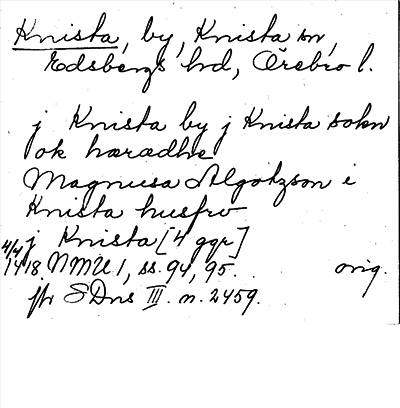 Knista, by, Knista sn,
Edsbergs hd, Örebro l.
j Knista by j Knista sokn
ok hæradhe
Magnusa Algotzson i
Knista husfro
j Knista [4 ggr]
4/4 1418 NMU 1, ss. 94, 95. orig.
jfr SDns III. n. 2459.